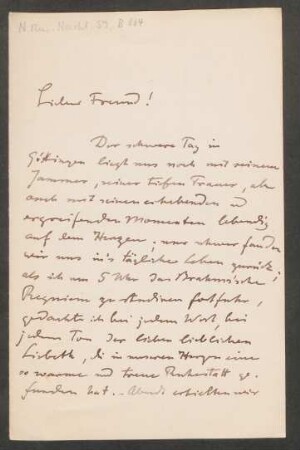 Lieber Freund!
Der schwere Tag in
Göttingen liegt uns noch mit seinem
Jammer, seiner tiefen Trauer, aber
auch mit seinen erhebenden u
ergreifenden Momenten lebendig
auf dem Herzen; nur schwer fanden
wir uns in's tägliche Leben zurück;
als ich um 5 Uhr das Brahmsische
Requiem zu studiren fortfuhr,
gedachte ich bei jedem Wort, bei
jedem Ton der lieben lieblichen
Lisbeth, die in unseren Herzen eine
so warme und treue Ruhestatt ge-
funden hat. – Abends erhielten wir